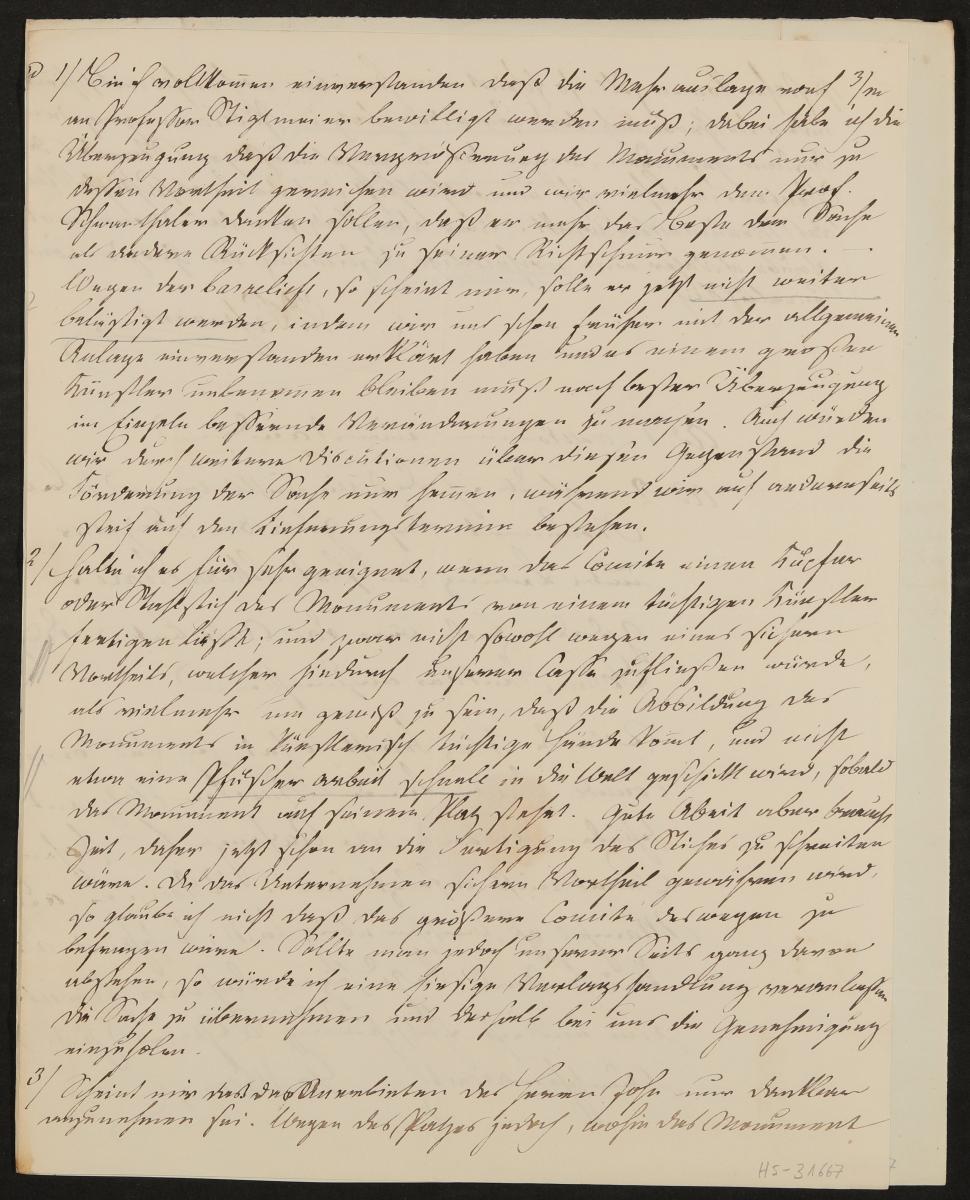 1) Bin ich vollkom̄en einverstanden daß die Mehrauslage von f 3/m
an Professor Stiglmeier bewilligt werden muß; dabei habe ich die
Überzeugung daß die Vergrößerung des Monuments nur zu
dessen Vortheil gereichen wird und wir vielmehr dem Prof.
Schwanthaler danken sollen, daß er mehr das Beste der Sache
als andere Rücksichten zu seiner Richtschnur genom̄en. —.
Wegen der basreliefs, so scheint mir, solle er jetzt nicht weiter
belästigt werden, indem wir uns schon früher mit der allgemeinen
Anlage einverstanden erklärt haben und es einem großen
Künstler unbenom̄en bleiben muß nach bester Überzeugung
im Einzeln bessernde Veränderungen zu machen. Auch würden
wir durch weitere Discutionen über diesen Gegenstand die
Förderung der Sache nur hem̄en, während wir auf anderseits
steif auf den Lieferungstermin bestehen.
2) Halte ich es für sehr geeignet, wenn das Comite einen Kupfer
oder Stahlstich des Monuments von einem tüchtigen Künstler
fertigen ließe; und zwar nicht sowohl wegen eines sichern
Vortheils, welcher hiedurch unserer Casse zufließen würde,
als vielmehr um gewiß zu sein, daß die Abbildung des
Monuments in künstlerisch tüchtige Hände kom̄t, und nicht
etwa eine Pfuscher arbeit schnell in die Welt geschickt wird, sobald
das Monument auf seinem Platz stehet. Gute Abeit aber braucht
Zeit, daher jetzt schon an die Fertigung des Stiches zu schreiten
wäre. Da das Unternehmen sichern Vortheil gewähren wird,
so glaube ich nicht daß das größere Comite deswegen zu
befragen wäre. Sollte man jedoch unserer Seits ganz davon
abstehen, so würde ich eine hiesige Verlagshandlung veranlassen
die Sache zu übernehmen und deshalb bei uns die Genehmigung
einzuholen.
3) Scheint mir daß das Anerbieten des Herrn John nur dankbar
anzunehmen sei. Wegen des Platzes jedoch, wohin das Monument
HS-31667